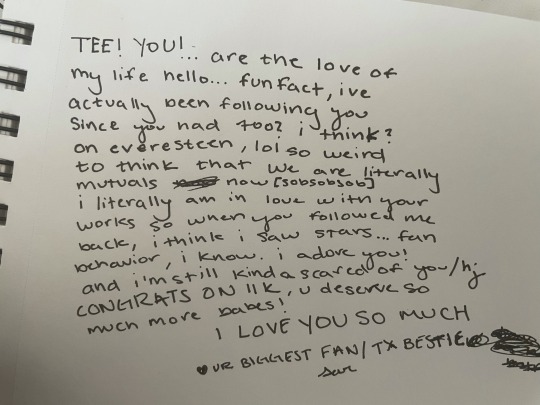 TEE! YOU!... are the love of
my life hello... funfact, ive
actually been following you
since you had 700? i think?
on everesteen, lol so weird
to think that we are literally
mutuals now [sobsobsob]
i literally am in love with your
works so when you followed me
back, i think i saw stars... fan
behavior, i know. i adore you!
and i'm still kinda scared of you/hj
CONGRATS ON 11K, u deserve so
much more babes!
I LOVE YOU SO MUCH
♥ UR BIGGEST FAN/TX BESTIE
sar